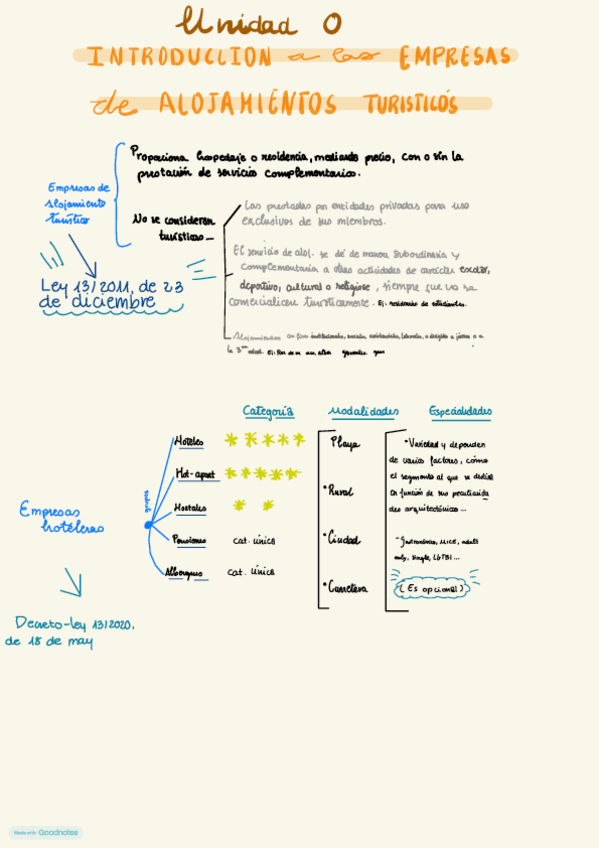 Unidad 0
INTRODUCCION a las EMPRESAS
de ALOJAMIENTOS TURISTICOS
Proporciona hospedaje o residencia, mediando precio, con o sin la
prestación de servicio complementarios.
Empresas de
alojamiento
turístico
No se consideran
turísticas...
Las prestadas por entidades privadas para uso
exclusivos de sus miembros.
El servicio de aloj. se dé de manera subordinaria y
complementaria a otras actividades de carácter escolar,
deportivo, cultural o religioso, siempre que no se
comercialicen turísticamente. Ej: residencias de estudiantes.
Ley 13/2011, de 23
de diciembre
Alojamientos con fines institucionales, sociales, asistenciales, laborales, o dirigidos a jóvenes o a
la 3ra edad. Ej:
Categoría
Modalidades
Especialidades
Empresas
hoteleras
grupos
Hoteles
Hot-apart
Hostales
Pensiones
cat. única
Albergues
cat. única
Playa
• Rural
• Ciudad
• Carretera
• Variedad y dependen
de varios factores, cómo
el segmento al que se
en función de sus peculiarida
des arquitectónicas...
- Gastronómico, MICE, adults
only, single, LGTBI...
(Es opcional)
Decreto-ley 13/2020,
de 18 de may
Made with Goodnotes